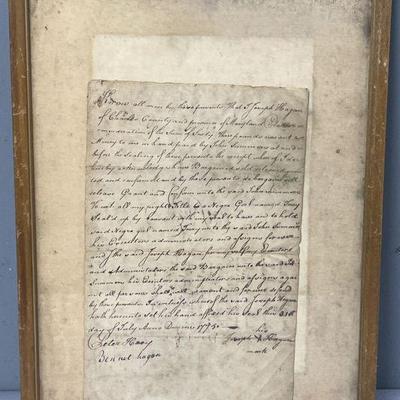 Know all men by these presents that I Joseph Hagan
of Charles County and province of Maryland Planter in
consideration of the Sum of Sixty three pounds current
Money to me in hand paid by John Simmons at and
before the Sealing of these presents the receipt whereof I do
hereby acknowledge have Bargained sold
and confirmed and by these presents do Bargain sell
release Grant and Confirm unto the said John Simmons
all my right title to a Negro Girl named
to have and to hold
said Negro girl named unto the said John Simmons
his Executors administrators and assigns forever
and I the said Joseph Hagan for my self my Executors
and Administrators the said Bargain unto the said
Simmons his Executors administrators and assigns again
st all persons Shall will warrant and forever defend
by these presents In witness whereof the said Joseph Hagan
hath hereunto set his hand affixed his Seal this
day of July Anno Domini
his
Joseph Hagan
mark
Bennet hagan